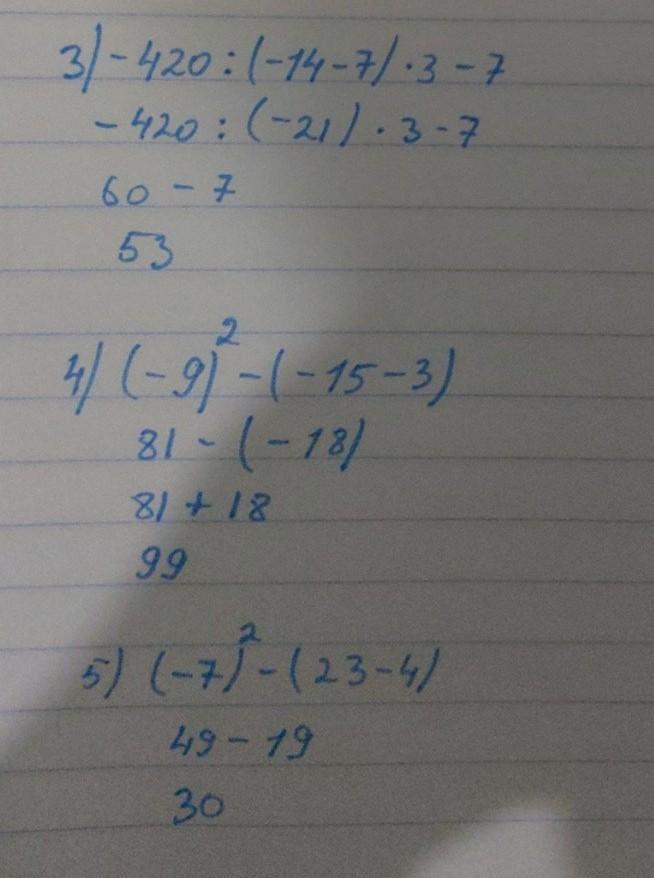 3) -420 : (-14-7) · 3 - 7
-420 : (-21) · 3 - 7
60 - 7
53
4) (-9)² - (-15-3)
81 - (-18)
81 + 18
99
5) (-7)² - (23-4)
49 - 19
30